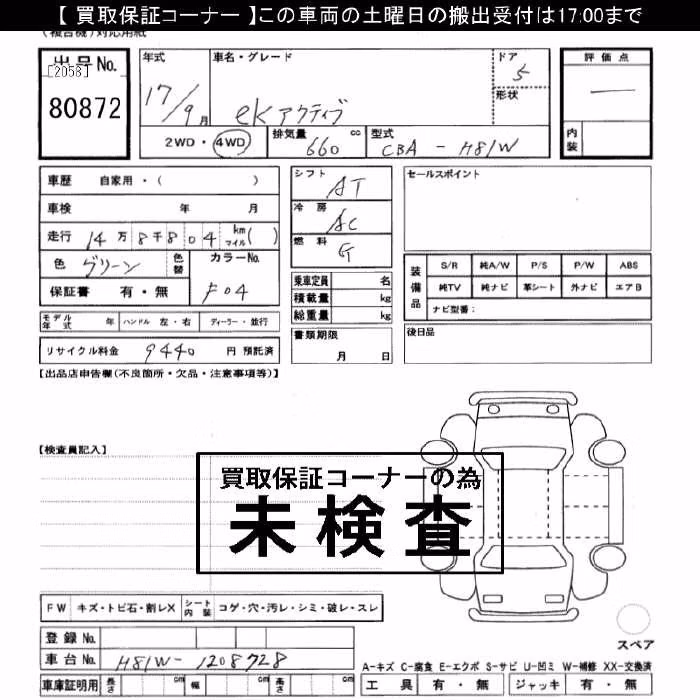 【 買取保証コーナー 】この車両の土曜日の搬出受付は17:00まで
(複合機)対応用紙
出品No.
[2058]
80872
年式
17/9月
車名・グレード
eKアクティブ
ドア
5
形状
評価点
—
内装
2WD・4WD
排気量
660 cc
型式
CBA - H81W
車歴 自家用・( )
車検 年 月
走行 14万8千804 km マイル( )
色 グリーン
色替
カラーNo.
F04
保証書 有・無
シフト AT
冷房 AC
燃料 G
乗車定員 名
積載量 kg
総重量 kg
セールスポイント
装備品
S/R 純A/W P/S P/W ABS
純TV 純ナビ 革シート 外ナビ エアB
ナビ型番:
モデル年式 年 ハンドル 左・右 ディーラー・並行
リサイクル料金 9440 円 預託済
書類期限
月 日
後日品
【出品店申告欄(不良箇所・欠品・注意事項等)】
【検査員記入】
買取保証コーナーの為
未検査
FW キズ・トビ石・割レX シート内装 コゲ・穴・汚レ・シミ・破レ・スレ
スペア
登録No.
車台No. H81W-1208728
車庫証明用 長さ cm 幅 cm 高さ cm
A-キズ C-腐食 E-エクボ S-サビ U-凹ミ W-補修 XX-交換済
工具 有・無 ジャッキ 有・無